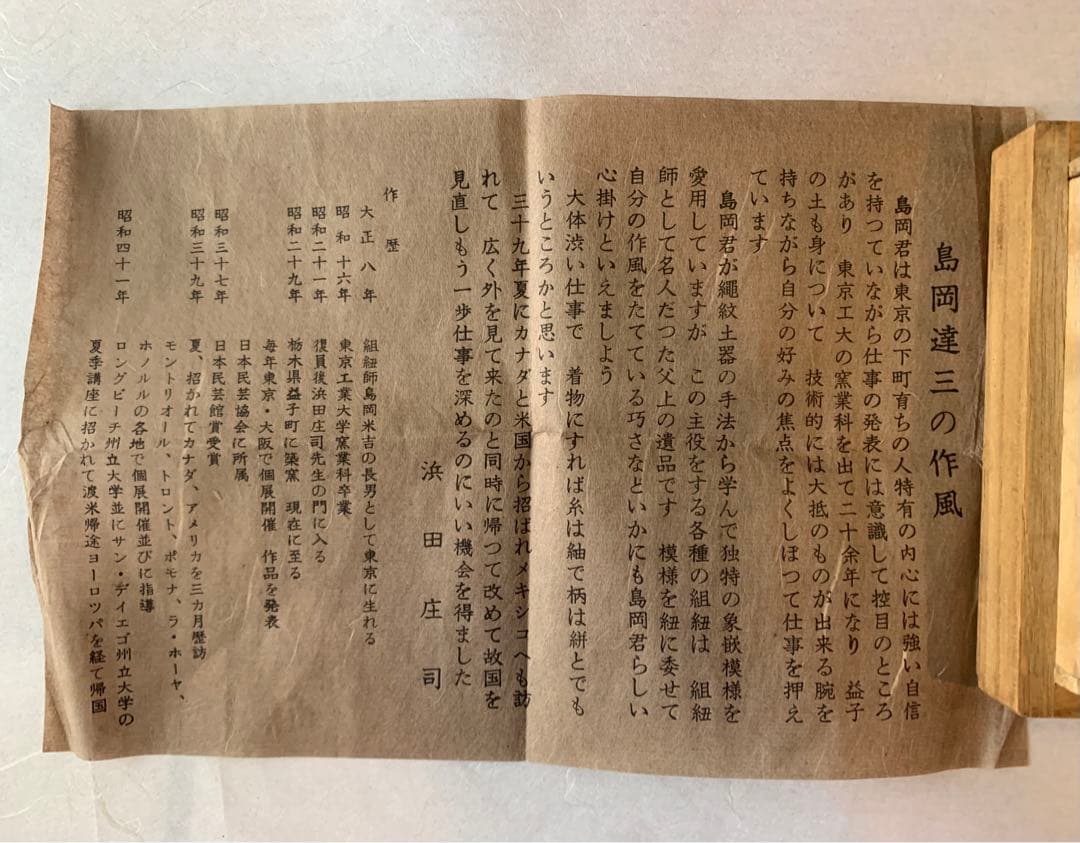 島岡達三の作風
島岡君は東京の下町育ちの人特有の内心には強い自信
を持つていながら仕事の発表には意識して控目のところ
があり　東京工大の窯業科を出て二十余年になり　益子
の土も身について　技術的には大抵のものが出来る腕を
持ちながら自分の好みの焦点をよくしぼつて仕事を押え
ています
島岡君が縄紋土器の手法から学んで独特の象嵌模様を
愛用していますが　この主役をする各種の組紐は　組紐
師として名人だつた父上の遺品です　模様を紐に委せて
自分の作風をたてている巧さなどいかにも島岡君らしい
心掛けといえましよう
大体渋い仕事で　着物にすれば糸は紬で柄は絣とでも
いうところかと思います
三十九年夏にカナダと米国から招ばれメキシコへも訪
れて　広く外を見て来たのと同時に帰つて改めて故国を
見直しもう一歩仕事を深めるのにいい機会を得ました
浜田庄司
作歴
大正八年　組紐師島岡米吉の長男として東京に生れる
昭和十六年　東京工業大学窯業科卒業
昭和二十一年　復員後浜田庄司先生の門に入る
昭和二十九年　栃木県益子町に築窯　現在に至る
毎年東京・大阪で個展開催　作品を発表
日本民芸協会に所属
昭和三十七年　日本民芸館賞受賞
昭和三十九年　夏、招かれてカナダ、アメリカを三カ月歴訪
モントリオール、トロント、ポモナ、ラ・ホーヤ、
ホノルルの各地で個展開催並びに指導
昭和四十一年　ロングビーチ州立大学並にサン・デイエゴ州立大学の
夏季講座に招かれて渡米帰途ヨーロツパを経て帰国